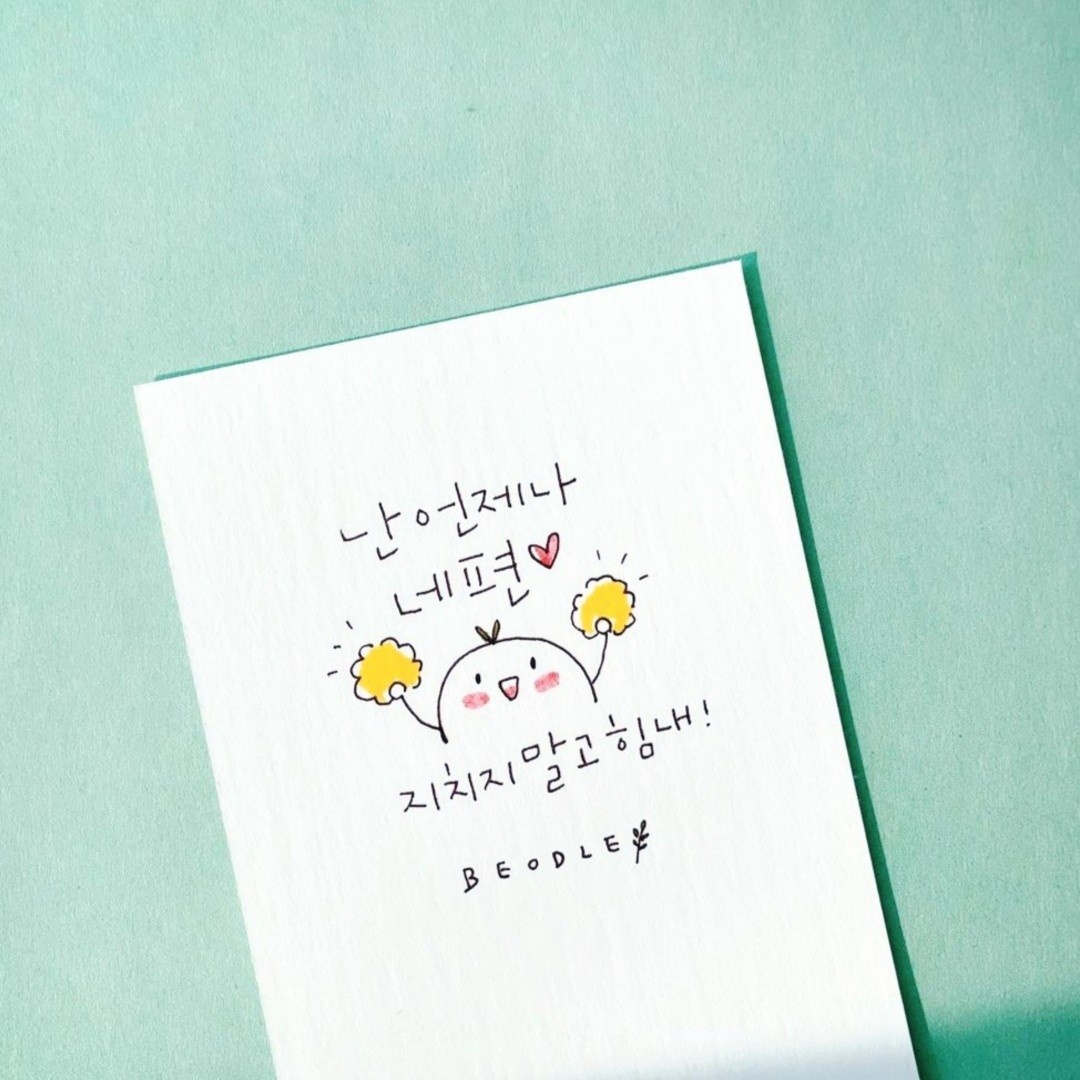 난 언제나
네편
지치지 말고 힘내!
BEODLE